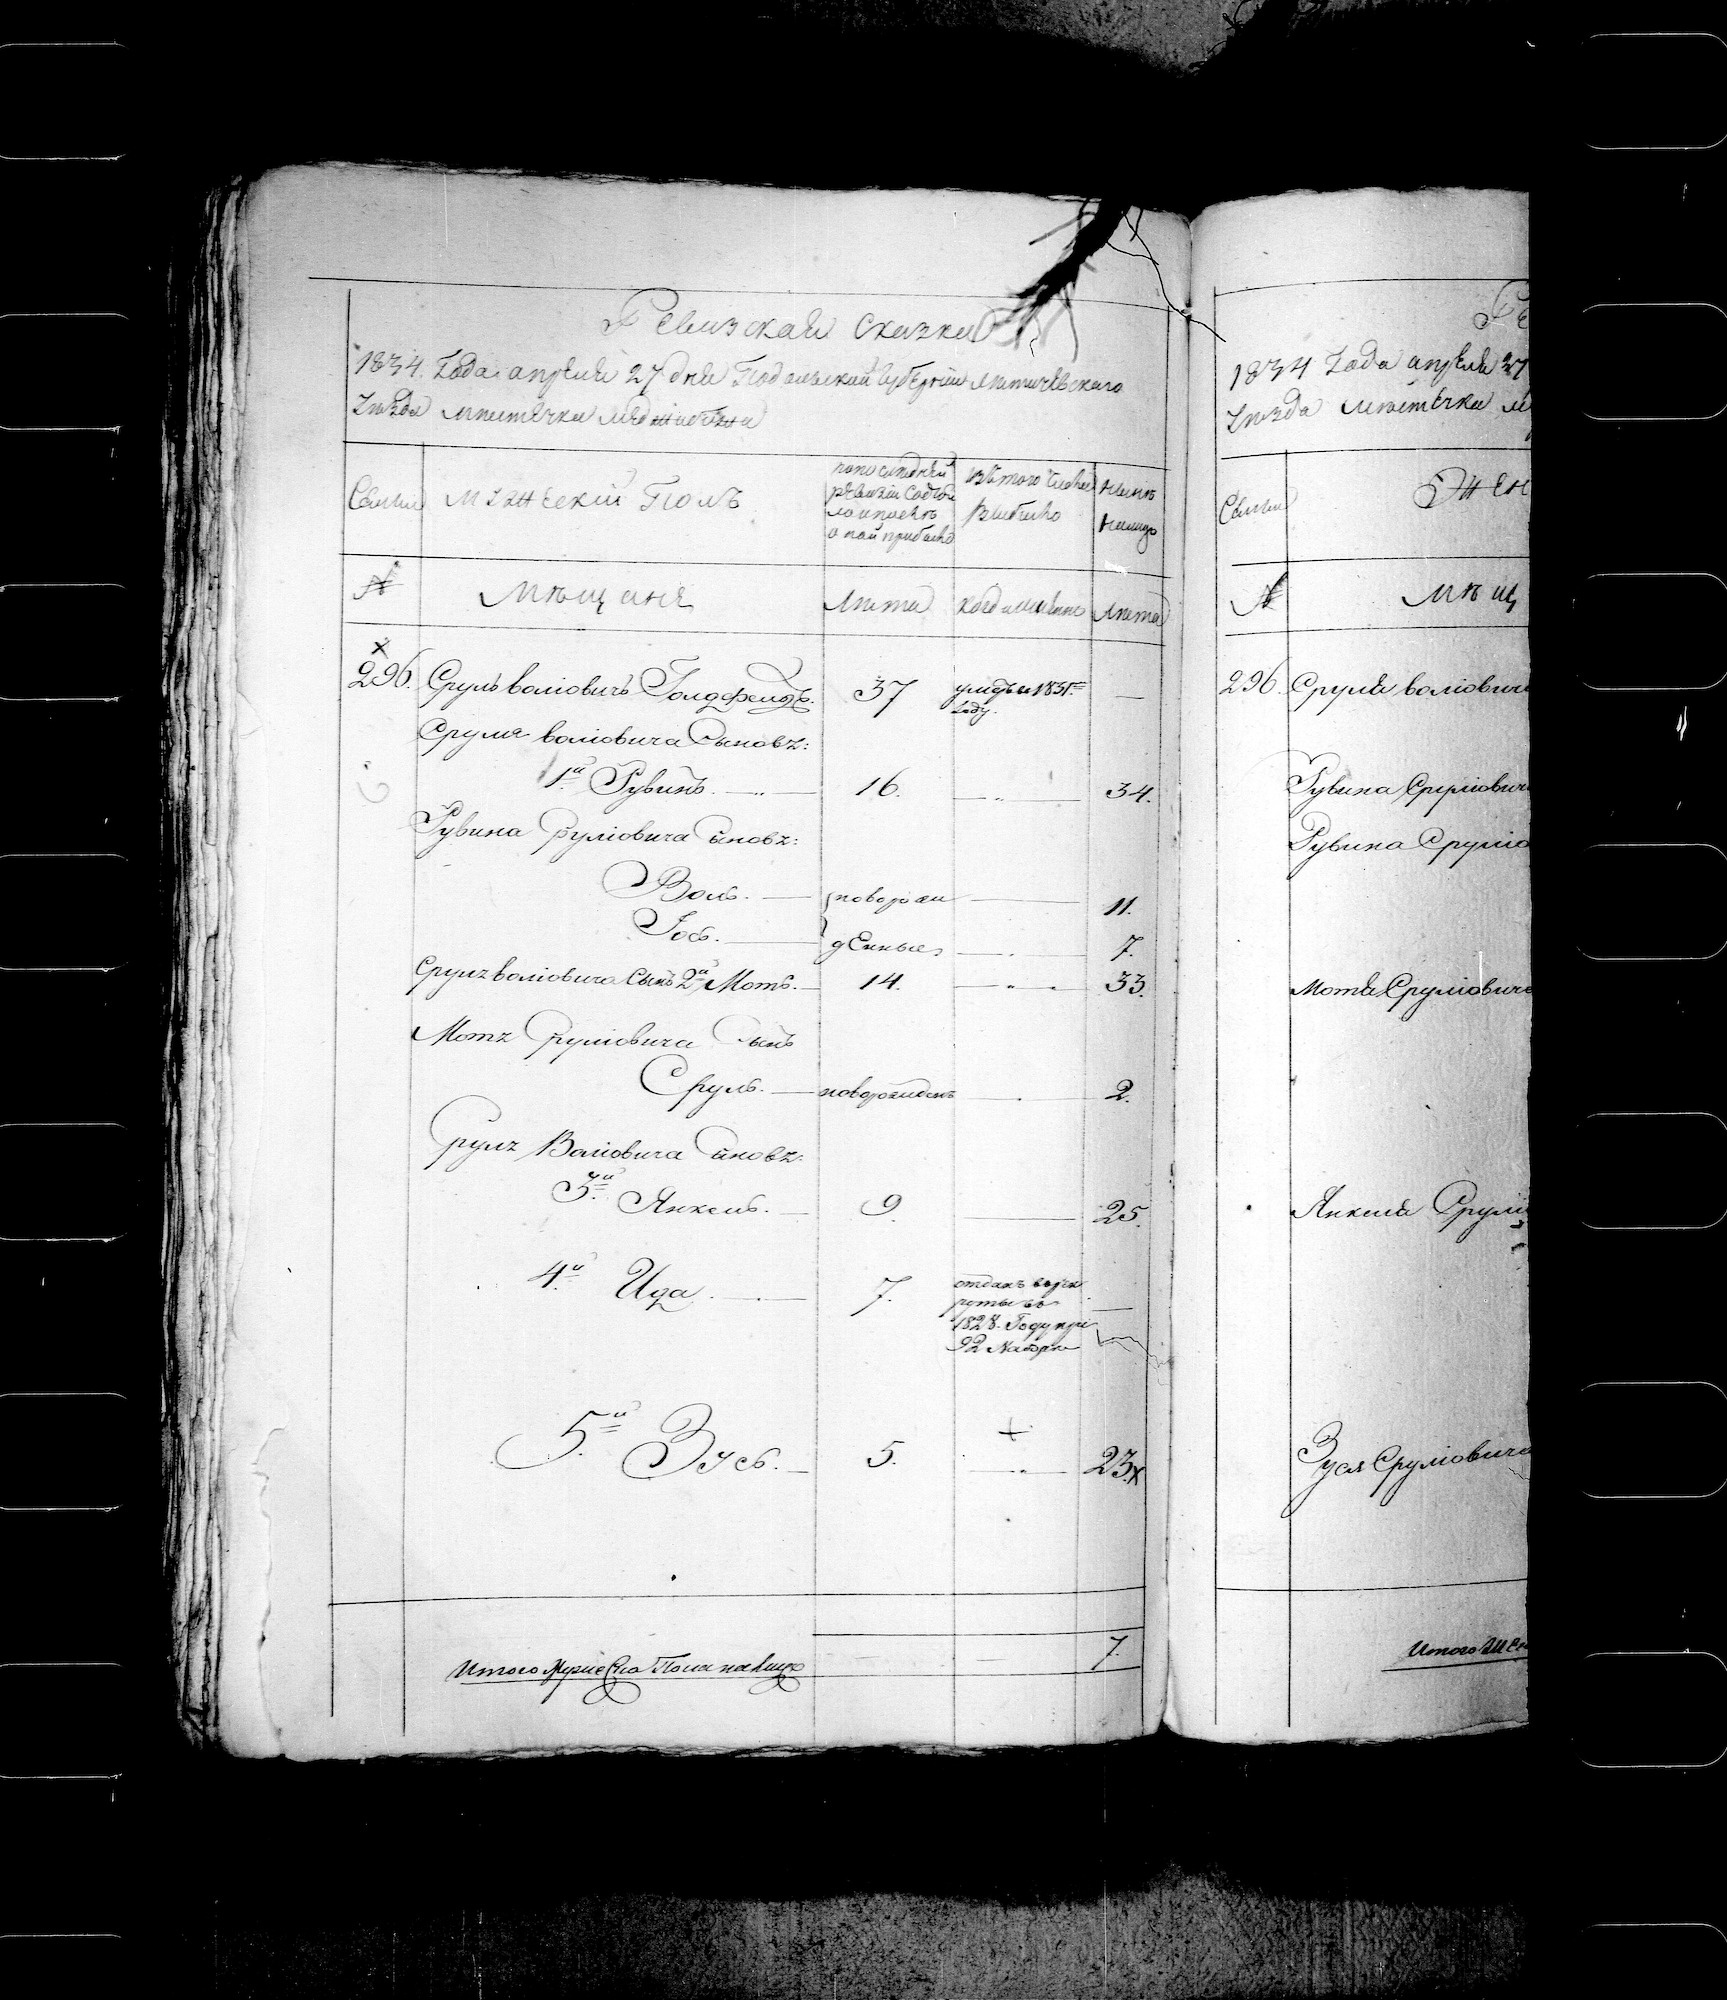 Ревизская сказка
1834. Года апреля 27 дня Подольской губернии Летичевского
уезда местечка Меджибожа
Семьи
Мужеский Полъ
по последней
ревизии состоя
ло и после
оной прибыло
Изъ того числа
Выбыло
Ныне
налицо
№
Мещане
Лета
когда именно
Лета
296. Сруль Волiовичъ Голдфелдъ. 37 умеръ в 1831м году. —
Сруля Волiовича Сыновъ:
1й Рувинъ. 16. — 34.
Рувина Срулiовича Сыновъ:
Воль. — новорож — 11.
Iось. — денные — 7.
Срулъ Волiовича Сынъ 2й Моть. 14. — 33.
Мотъ Срулiовича Сынъ
Сруль. — новорожденъ — 2.
Срулъ Волiовича Сыновъ:
3й Янкель. — 9. — 25.
4й Ица. — 7. отданъ в рек
руты въ
1828. Году при
92 Наборе
5й Зусь. — 5. + — 23.x
Итого Мужеска Пола налицо 7.
1834 Года апреля 27
уезда местечка М
Семьи
Жен
№
Мещ
296. Сруля Волiовича
Рувина Срулiович
Рувина Срулiо
Мотя Срулiовича
Янкеля Срулiо
Зуся Срулiовича
Итого Жен